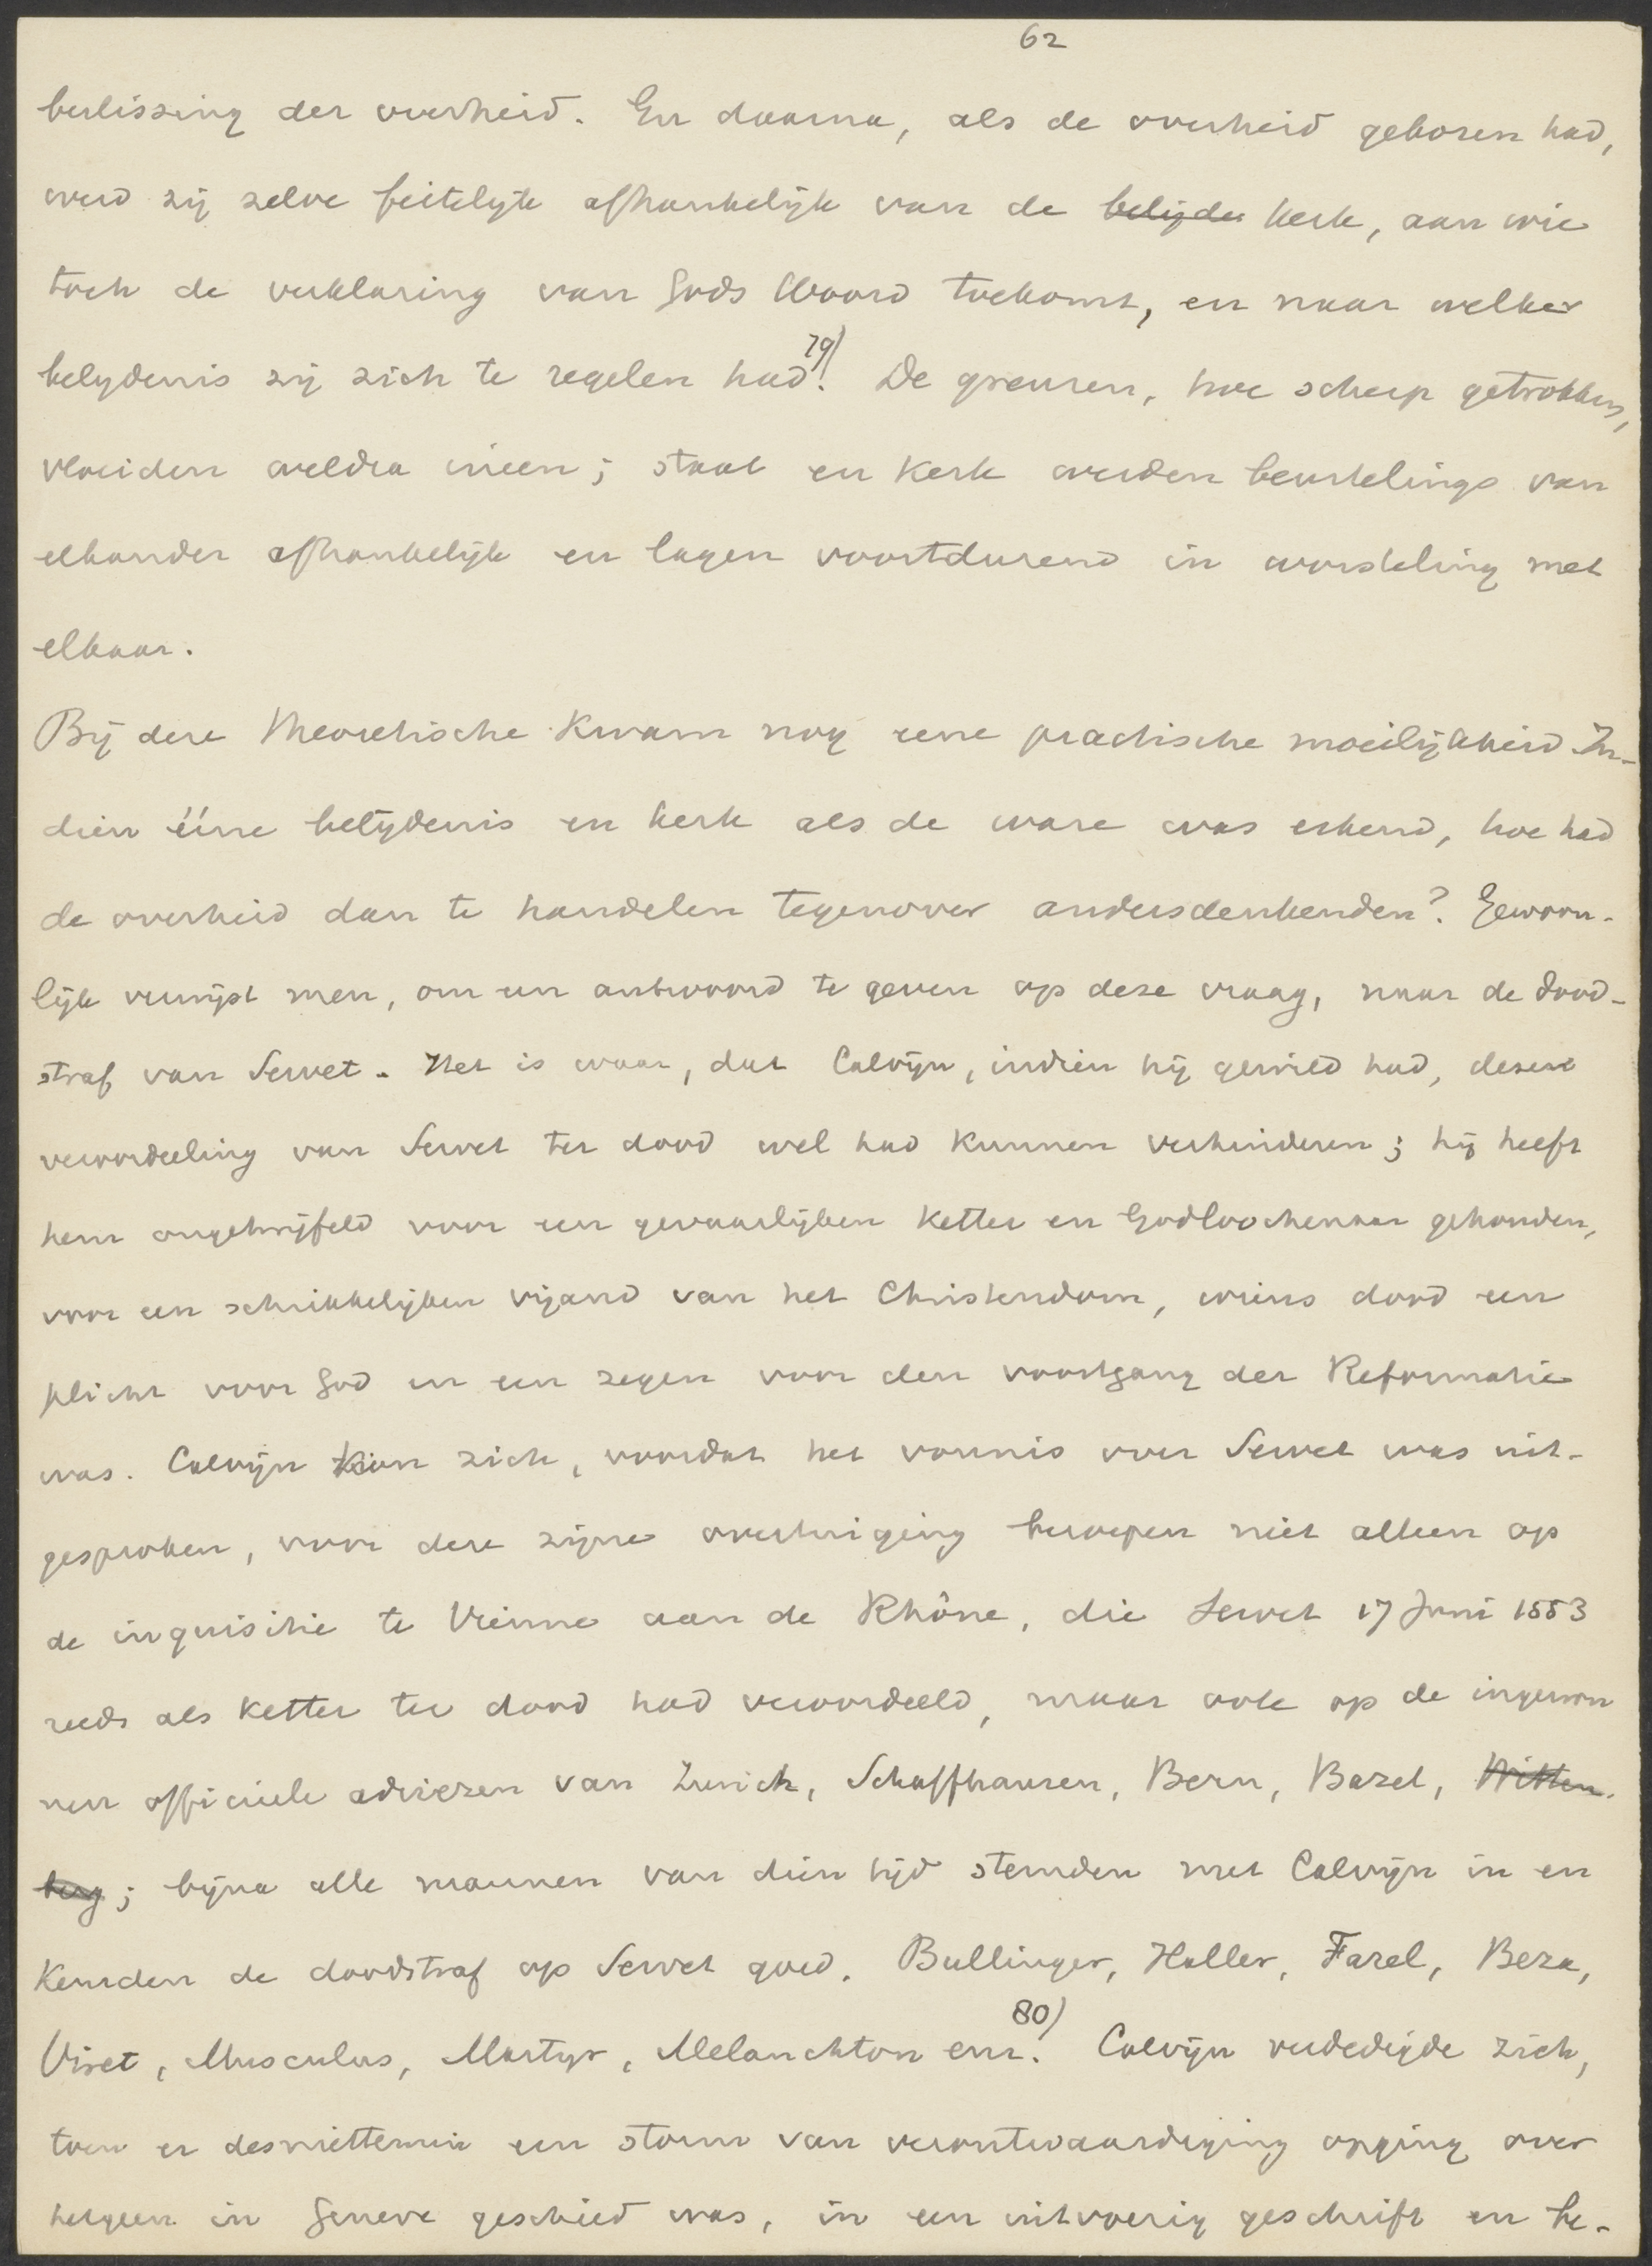 62
beslissing der overheid. En daarna, als de overheid gekozen had,
werd zij zelve feitelijk afhankelijk van de belijder kerk, aan wie
toch de verklaring van Gods Woord toekomt, en naar welker
belydenis zij zich te regelen had. 79) De grenzen, hoe scherp getrokken,
vloeiden weldra ineen; staat en kerk werden beurtelings van
elkander afhankelijk en lagen voortdurend in worsteling met
elkaar.
Bij deze theoretische kwam nog eene practische moeilijkheid. In-
dien ééne belijdenis en kerk als de ware was erkend, hoe had
de overheid dan te handelen tegenover andersdenkenden? Gewoon-
lijk verwijst men, om een antwoord te geven op deze vraag, naar de dood-
straf van Servet. Het is waar, dat Calvijn, indien hij gewild had, deze
veroordeeling van Servet ter dood wel had kunnen verhinderen; hij heeft
hem ongetwijfeld voor een gevaarlijken ketter en Godloochenaar gehouden,
voor een schrikkelijken vijand van het Christendom, wiens dood een
plicht voor God en een zegen voor den voortgang der Reformatie
was. Calvijn kon zich, voordat het vonnis over Servet was uit-
gesproken, voor deze zijne overtuiging beroepen niet alleen op
de inquisitie te Vienne aan de Rhône, die Servet 17 Juni 1553
reeds als ketter ter dood had veroordeeld, maar ook op de ingewon
nen officieele adviezen van Zurich, Schaffhausen, Bern, Bazel, Witten-
berg; bijna alle mannen van dien tijd stemden met Calvijn in en
keurden de doodstraf op Servet goed. Bullinger, Haller, Farel, Beza,
Viret, Musculus, Martyr, Melanchton enz. 80) Calvijn verdedigde zich,
toen er desniettemin een storm van verontwaardiging opging over
hetgeen in Geneve geschied was, in een uitvoerig geschrift en be-